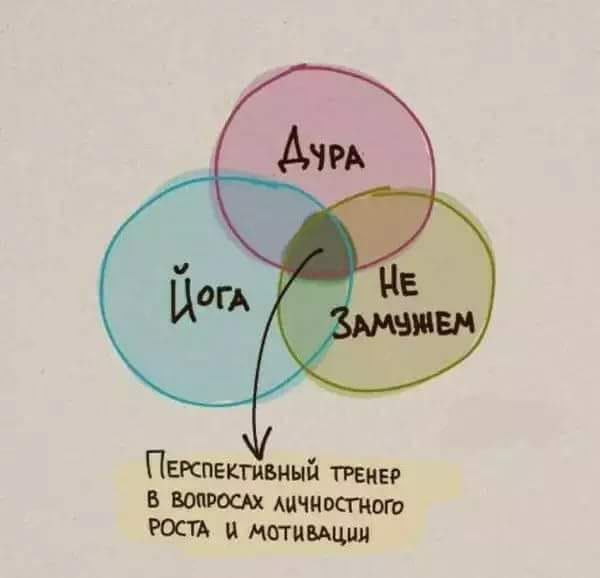 Дура
Йога
Не
Замужем
Перспективный тренер
в вопросах личностного
роста и мотивации